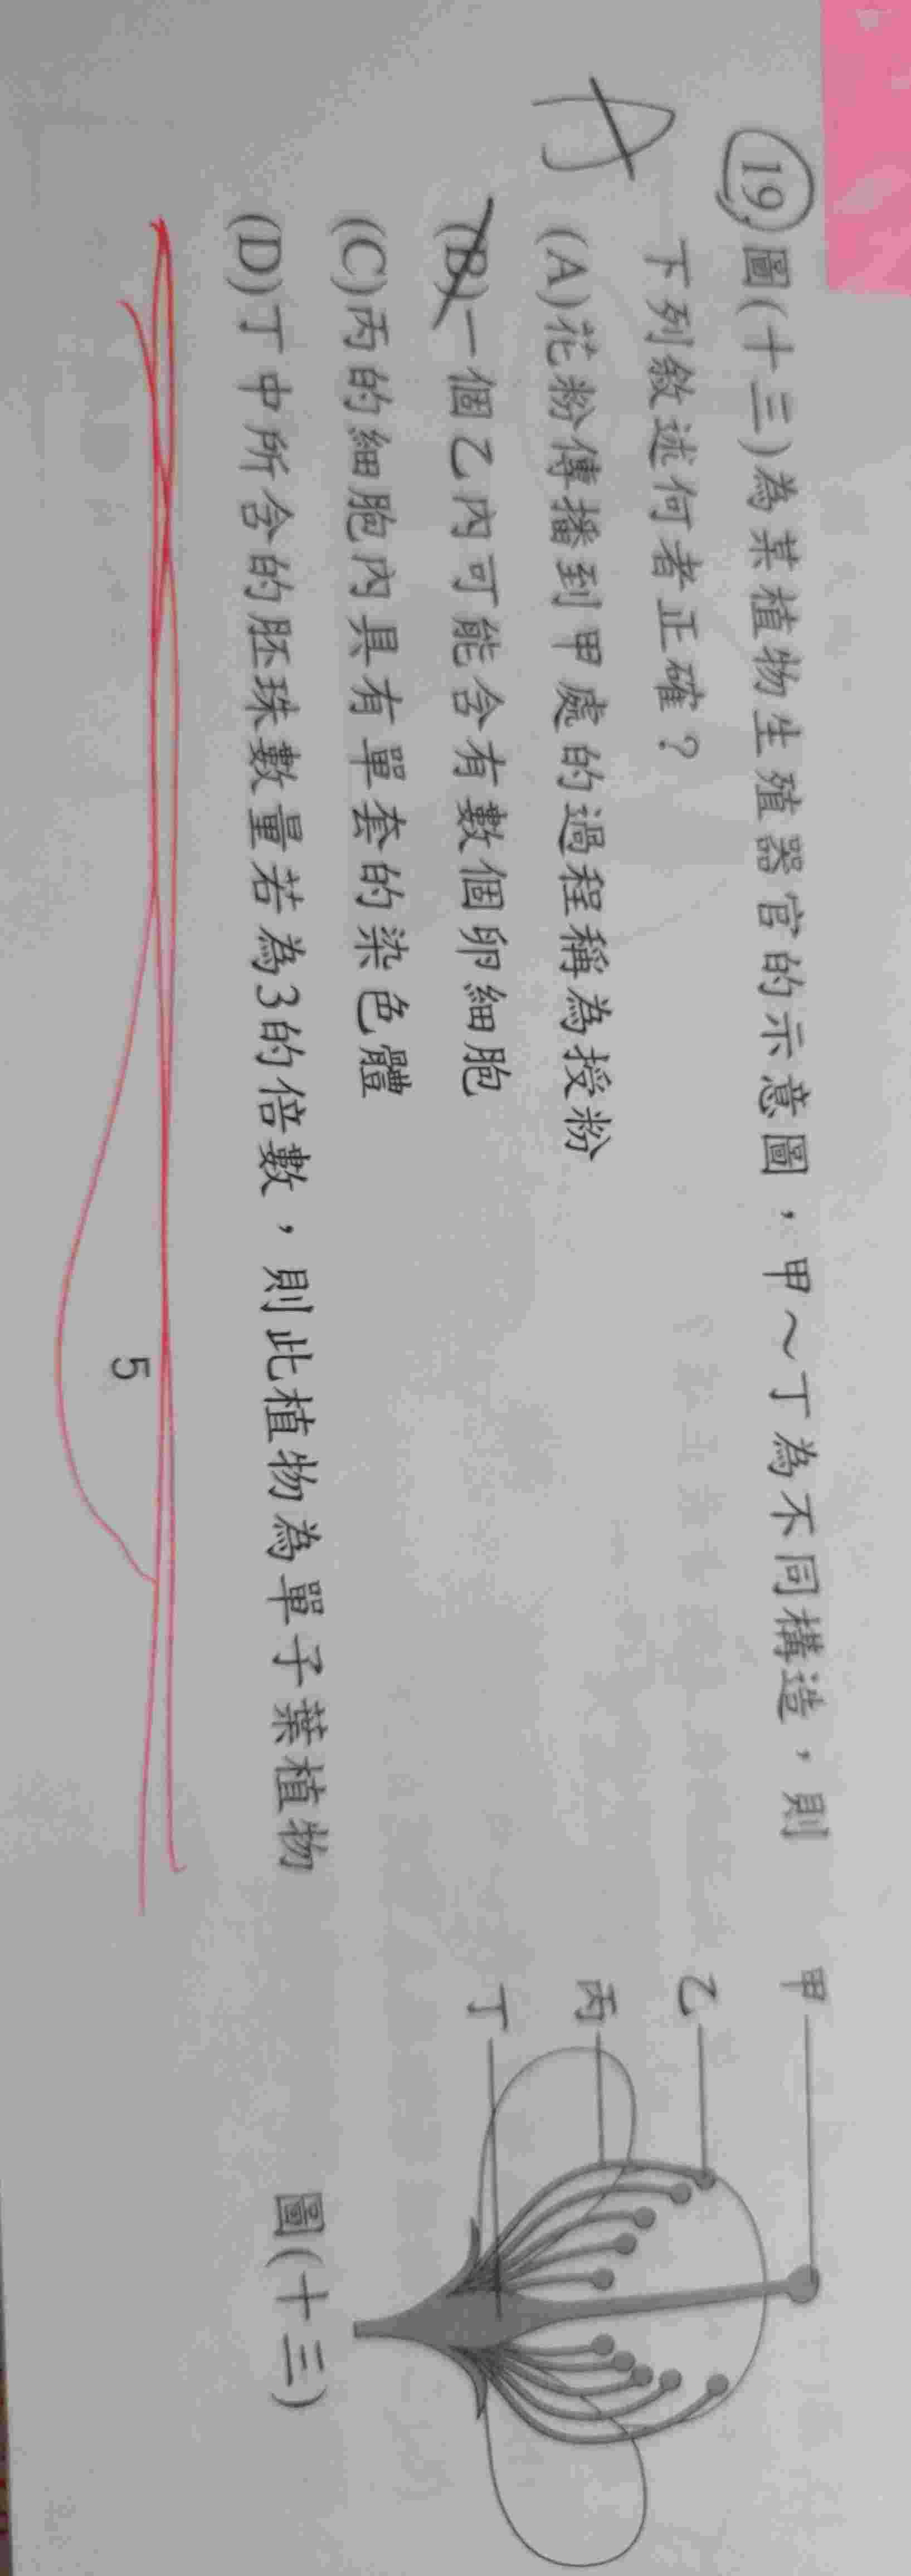 19. 圖(十三)為某植物生殖器官的示意圖，甲～丁為不同構造，則
下列敘述何者正確？
A
(A)花粉傳播到甲處的過程稱為授粉
(B)一個乙內可能含有數個卵細胞
(C)丙的細胞內具有單套的染色體
(D)丁中所含的胚珠數量若為3的倍數，則此植物為單子葉植物
甲
乙
丙
丁
圖(十三)
5